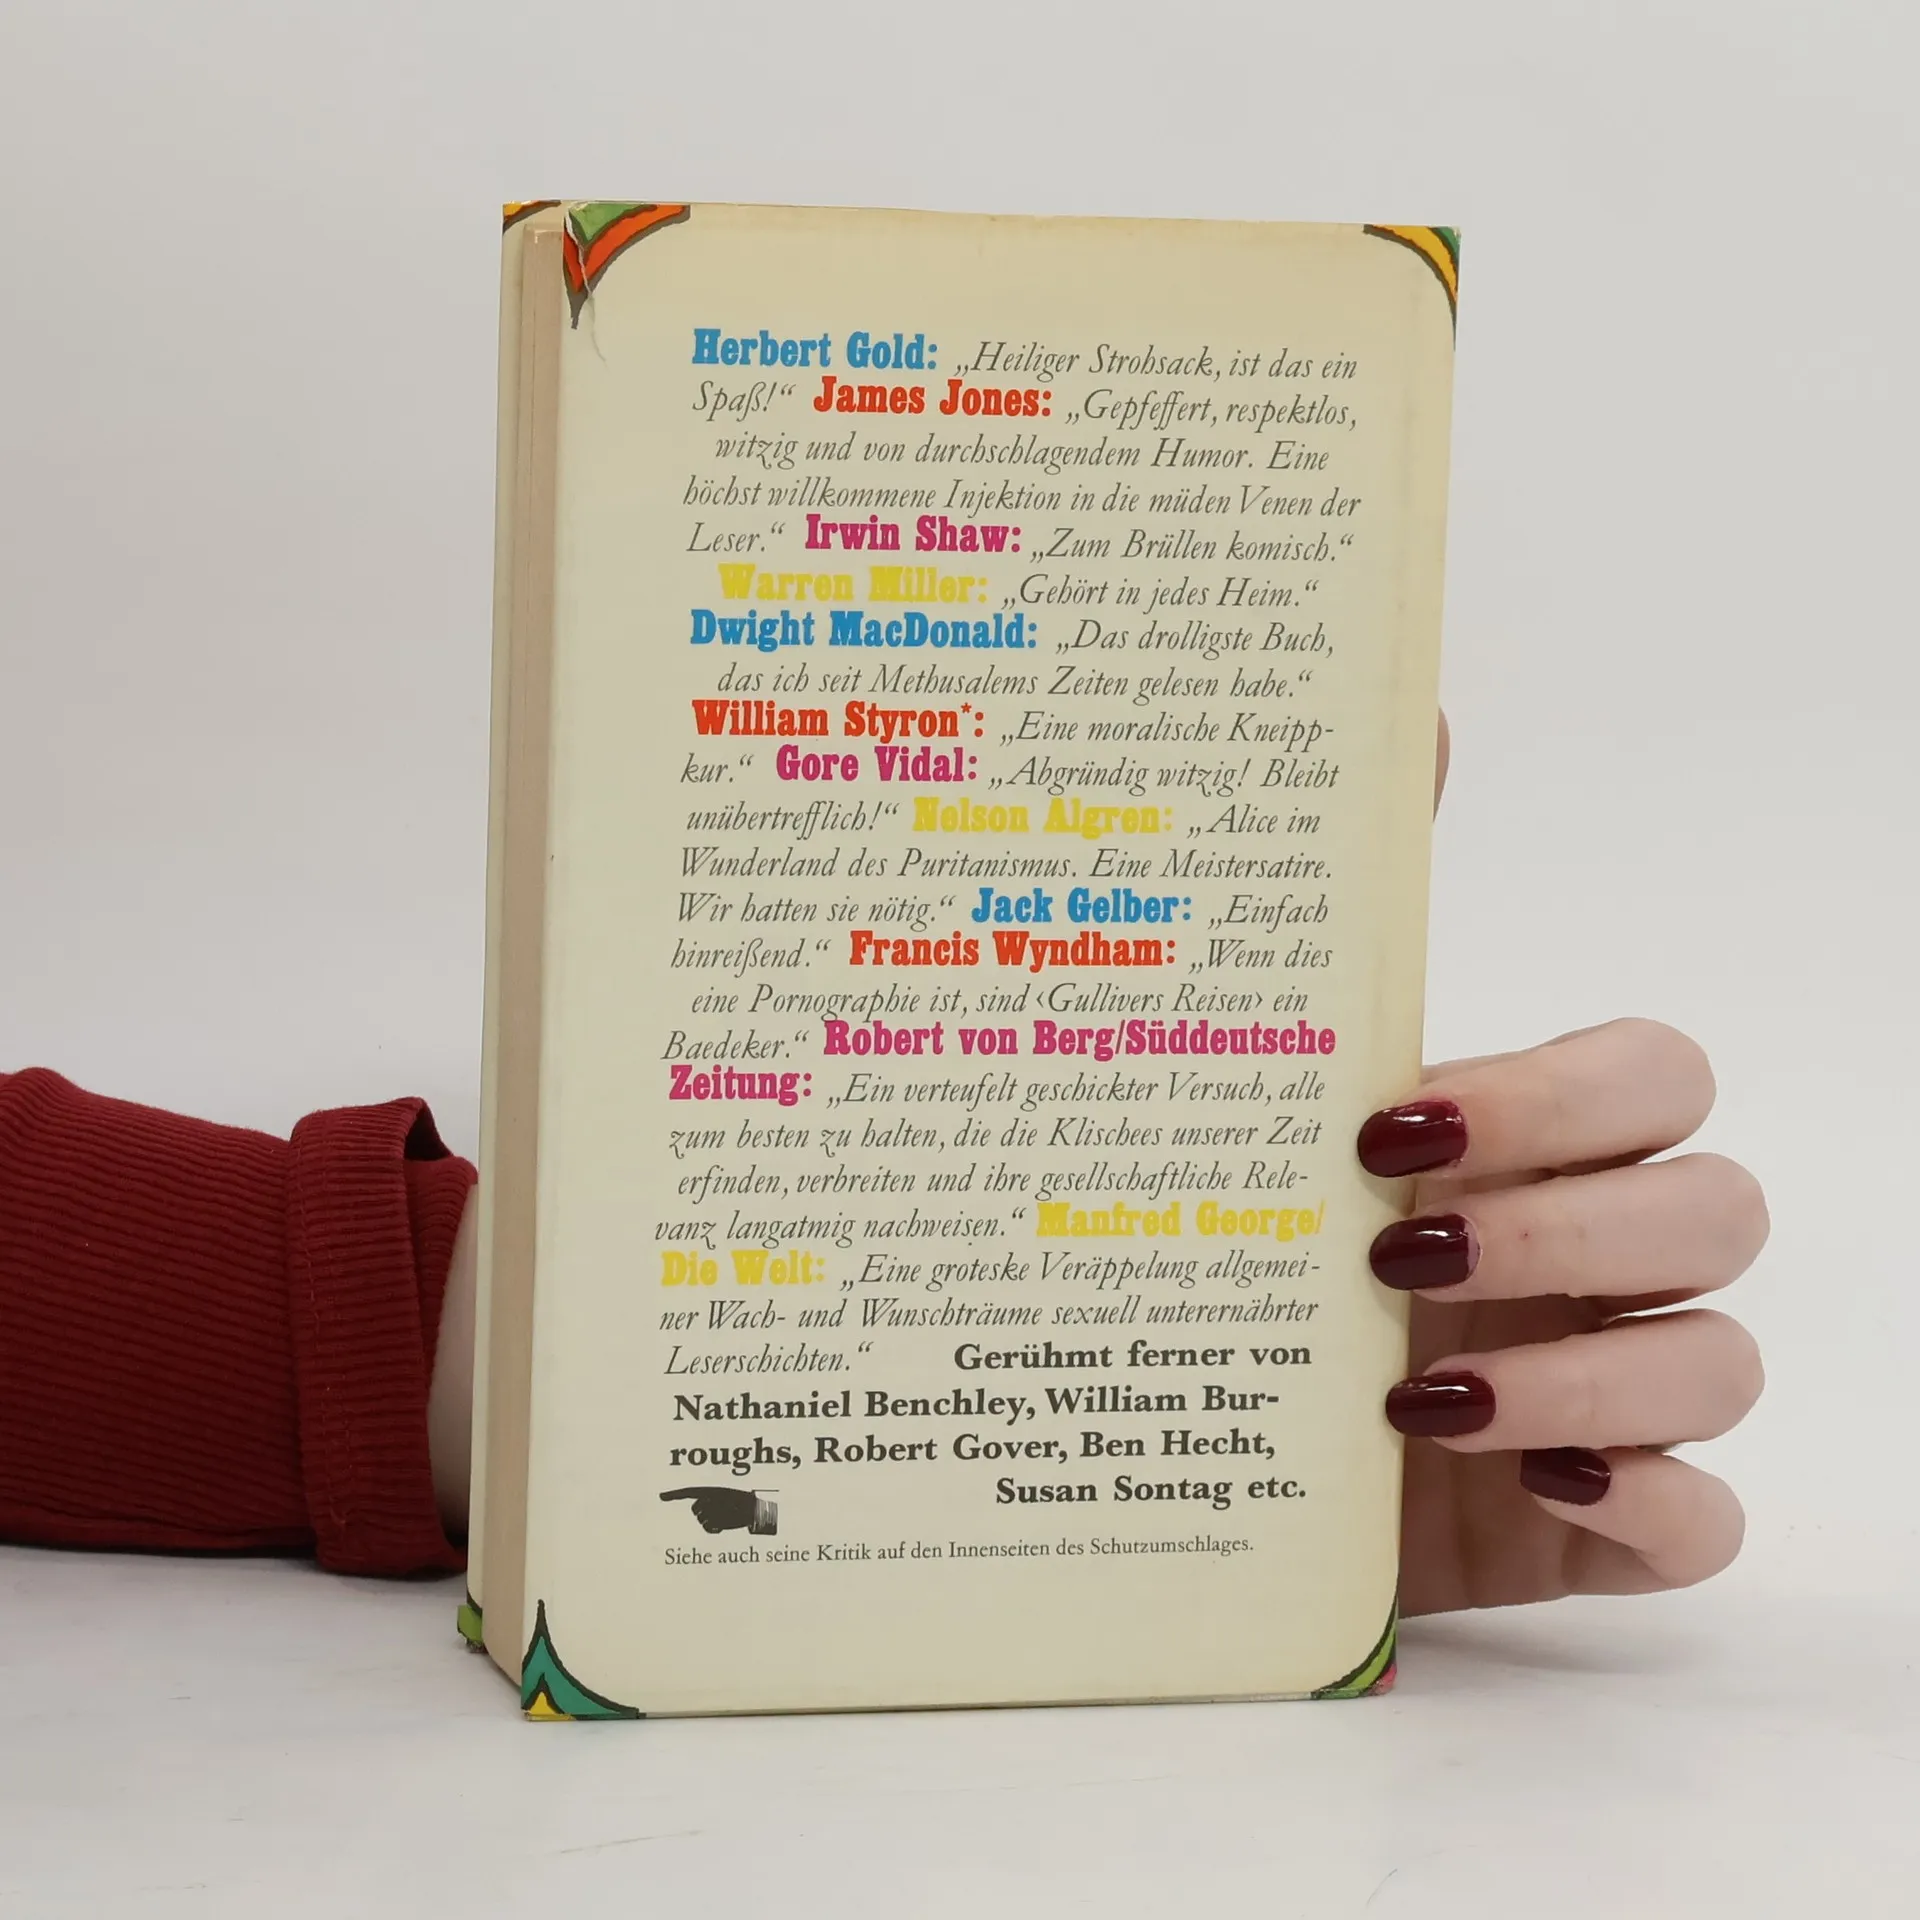 Herbert Gold: „Heiliger Strohsack, ist das ein
Spaß!“ James Jones: „Gepfeffert, respektlos,
witzig und von durchschlagendem Humor. Eine
höchst willkommene Injektion in die müden Venen der
Leser.“ Irwin Shaw: „Zum Brüllen komisch.“
Warren Miller: „Gehört in jedes Heim.“
Dwight MacDonald: „Das drolligste Buch,
das ich seit Methusalems Zeiten gelesen habe.“
William Styron*: „Eine moralische Kneipp-
kur.“ Gore Vidal: „Abgründig witzig! Bleibt
unübertrefflich!“ Nelson Algren: „Alice im
Wunderland des Puritanismus. Eine Meistersatire.
Wir hatten sie nötig.“ Jack Gelber: „Einfach
hinreißend.“ Francis Wyndham: „Wenn dies
eine Pornographie ist, sind ‹Gullivers Reisen› ein
Baedeker.“ Robert von Berg/Süddeutsche
Zeitung: „Ein verteufelt geschickter Versuch, alle
zum besten zu halten, die die Klischees unserer Zeit
erfinden, verbreiten und ihre gesellschaftliche Rele-
vanz langatmig nachweisen.“ Manfred George/
Die Welt: „Eine groteske Veräppelung allgemei-
ner Wach- und Wunschträume sexuell unterernährter
Leserschichten.“ Gerühmt ferner von
Nathaniel Benchley, William Bur-
roughs, Robert Gover, Ben Hecht,
Susan Sontag etc.
Siehe auch seine Kritik auf den Innenseiten des Schutzumschlages.